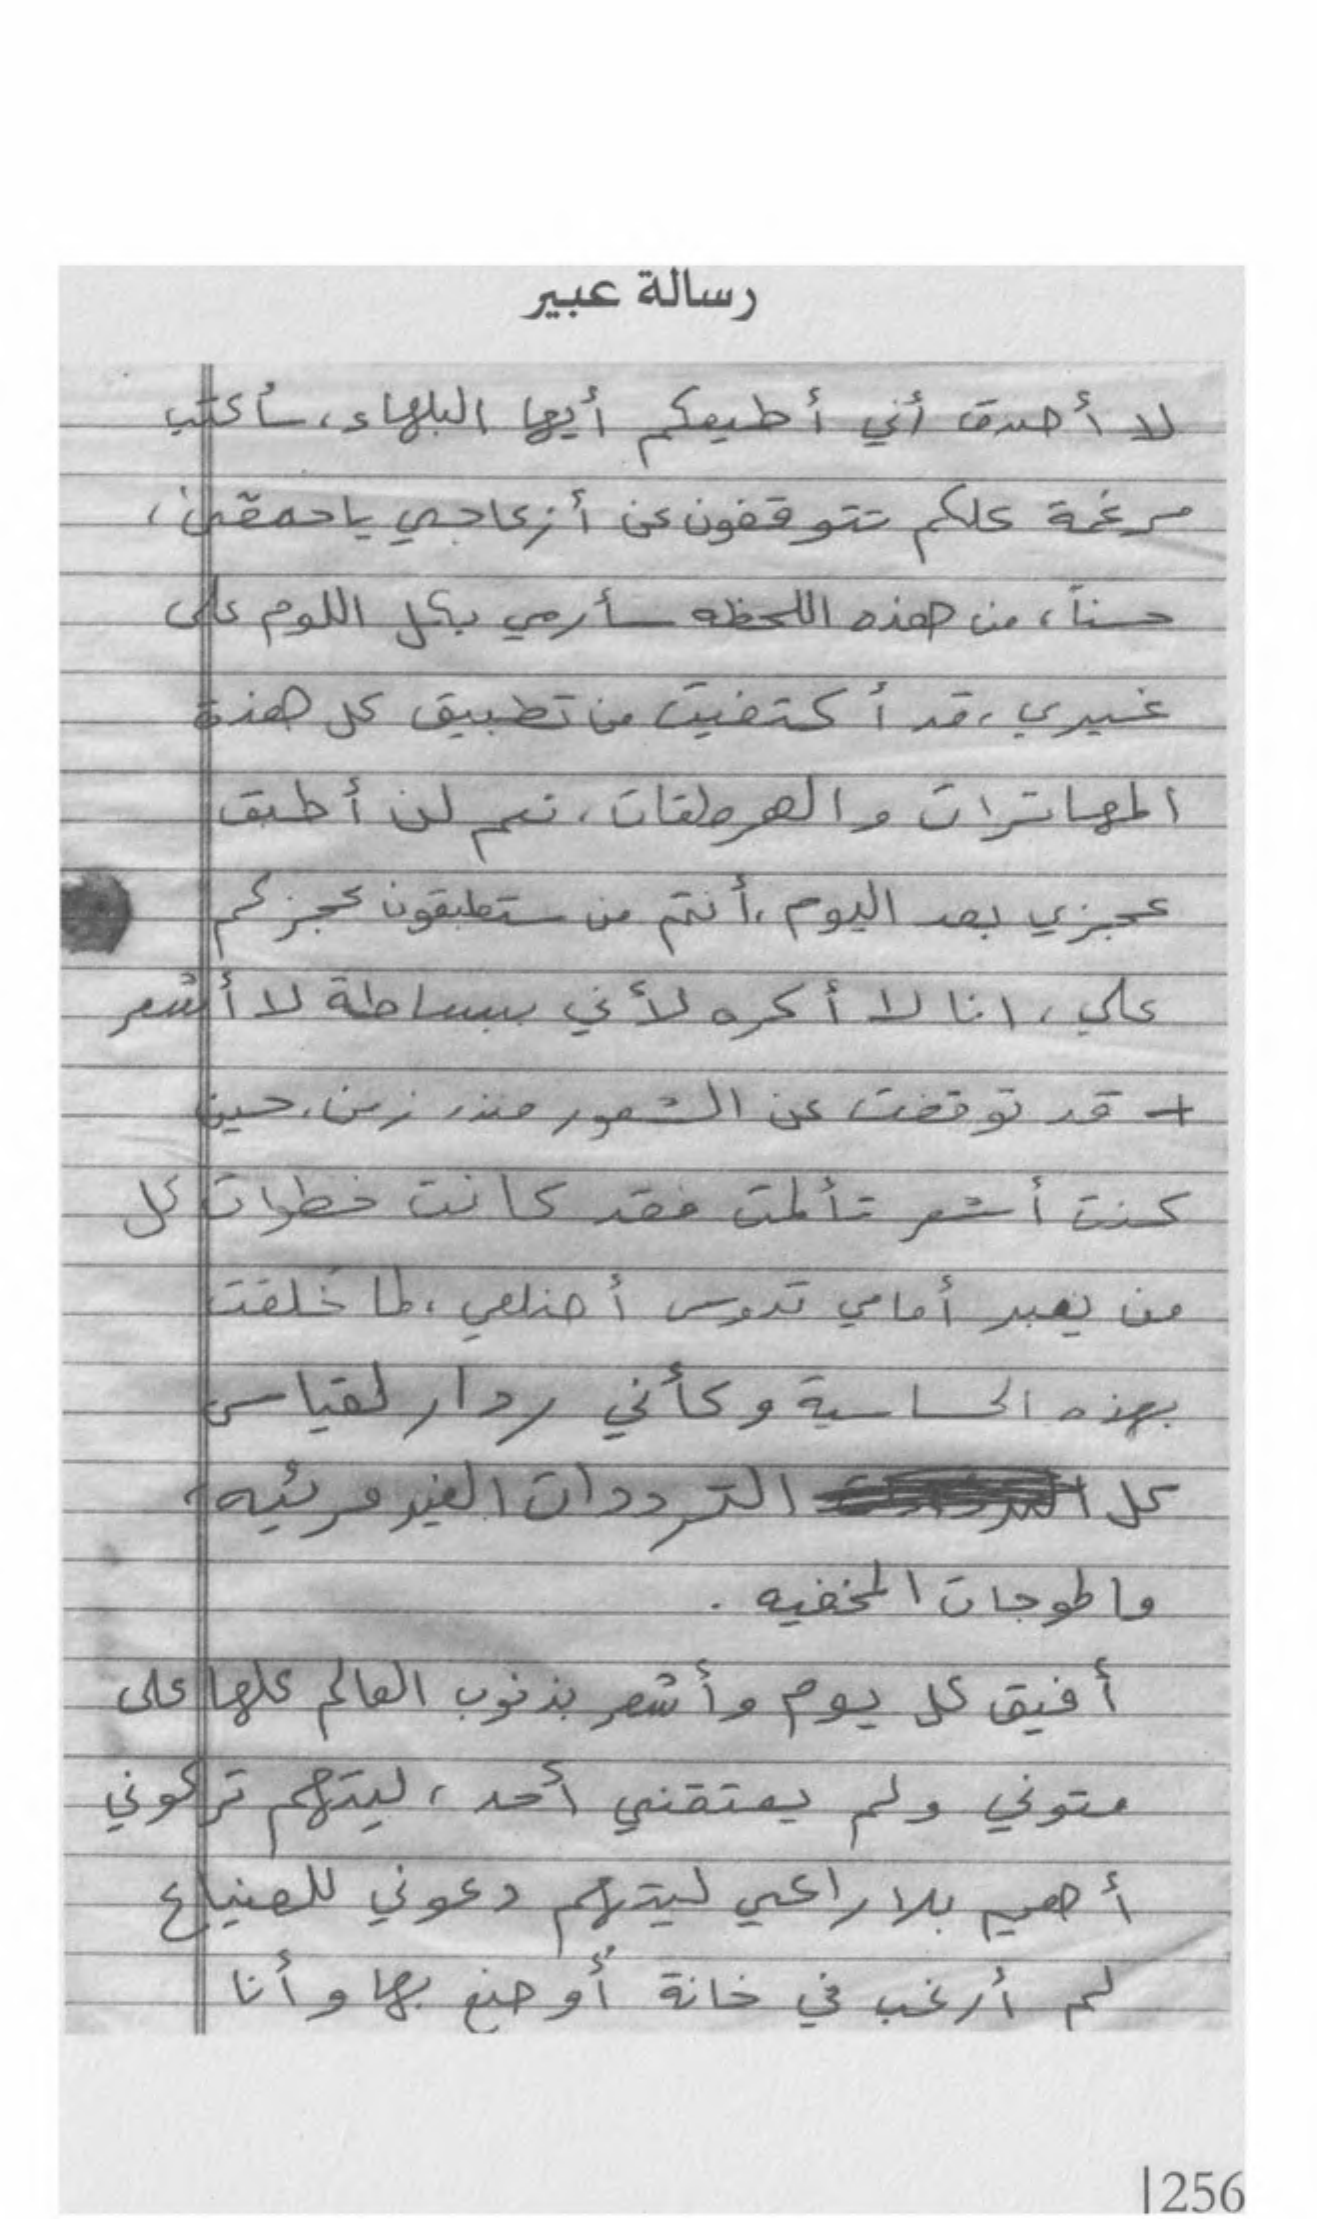 رسالة عبير
لا أصدق أني أطيعكم أيها البلهاء، سأكتب
مرغمة علكم تتوقفون عن أزعاجي ياحمقى،
حسناً، من هذه اللحظه سأرمي بكل اللوم على
غيري، قد أكتفيت من تطبيق كل هذة
المهاترات والهرطقات، نعم لن أطبق
عجزي بعد اليوم، أنتم من ستطبقون عجزكم
علي، انا لا أكره لأني ببساطة لا أشعر
+ قد توقفت عن الشعور منذ زمن، حين
كنت أشعر تألمت فقد كانت خطوات كل
من يعبر أمامي تدوس أضلعي، لما خُلقت
بهذه الحساسية وكأني ردار لقياس
كل الترددات الغير مرئيه،
والموجات المخفيه.
أفيق كل يوم وأشعر بذنوب العالم كلها على
متوني ولم يعتقني أحد، ليتهم تركوني
أهيم بلا راعي ليتهم دعوني للضياع
لم أرغب في خانة أُوضع بها وأنا
|256